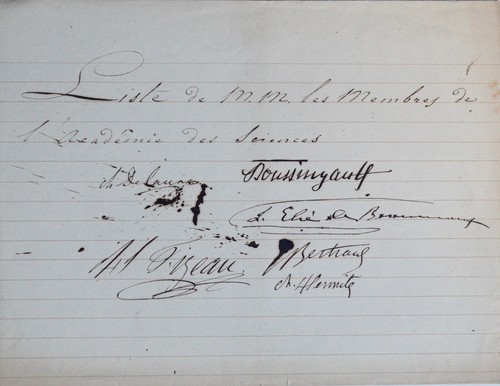 Liste de M.M. les Membres de
l'Académie des Sciences
Ch Delaunay Boussingault
L. Elie de Beaumont
H Fizeau J Bertrand
Ch. Hermite